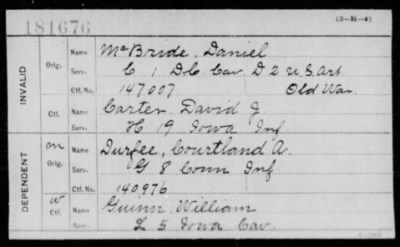 181676 (3-91-4)
INVALID
Orig. Name McBride, Daniel
Serv. C 1 D.C. Cav. D 2 U.S. Art.
Ctf. No. 147007 Old War.
Ctf. Name Carter, David J
Serv. H 19 Iowa Inf
DEPENDENT
m Orig. Name Durfee, Courtland A.
Serv. G 8 Conn Inf.
Ctf. No. 140976
w Ctf. Name Guinn William
L 5 Iowa Cav.